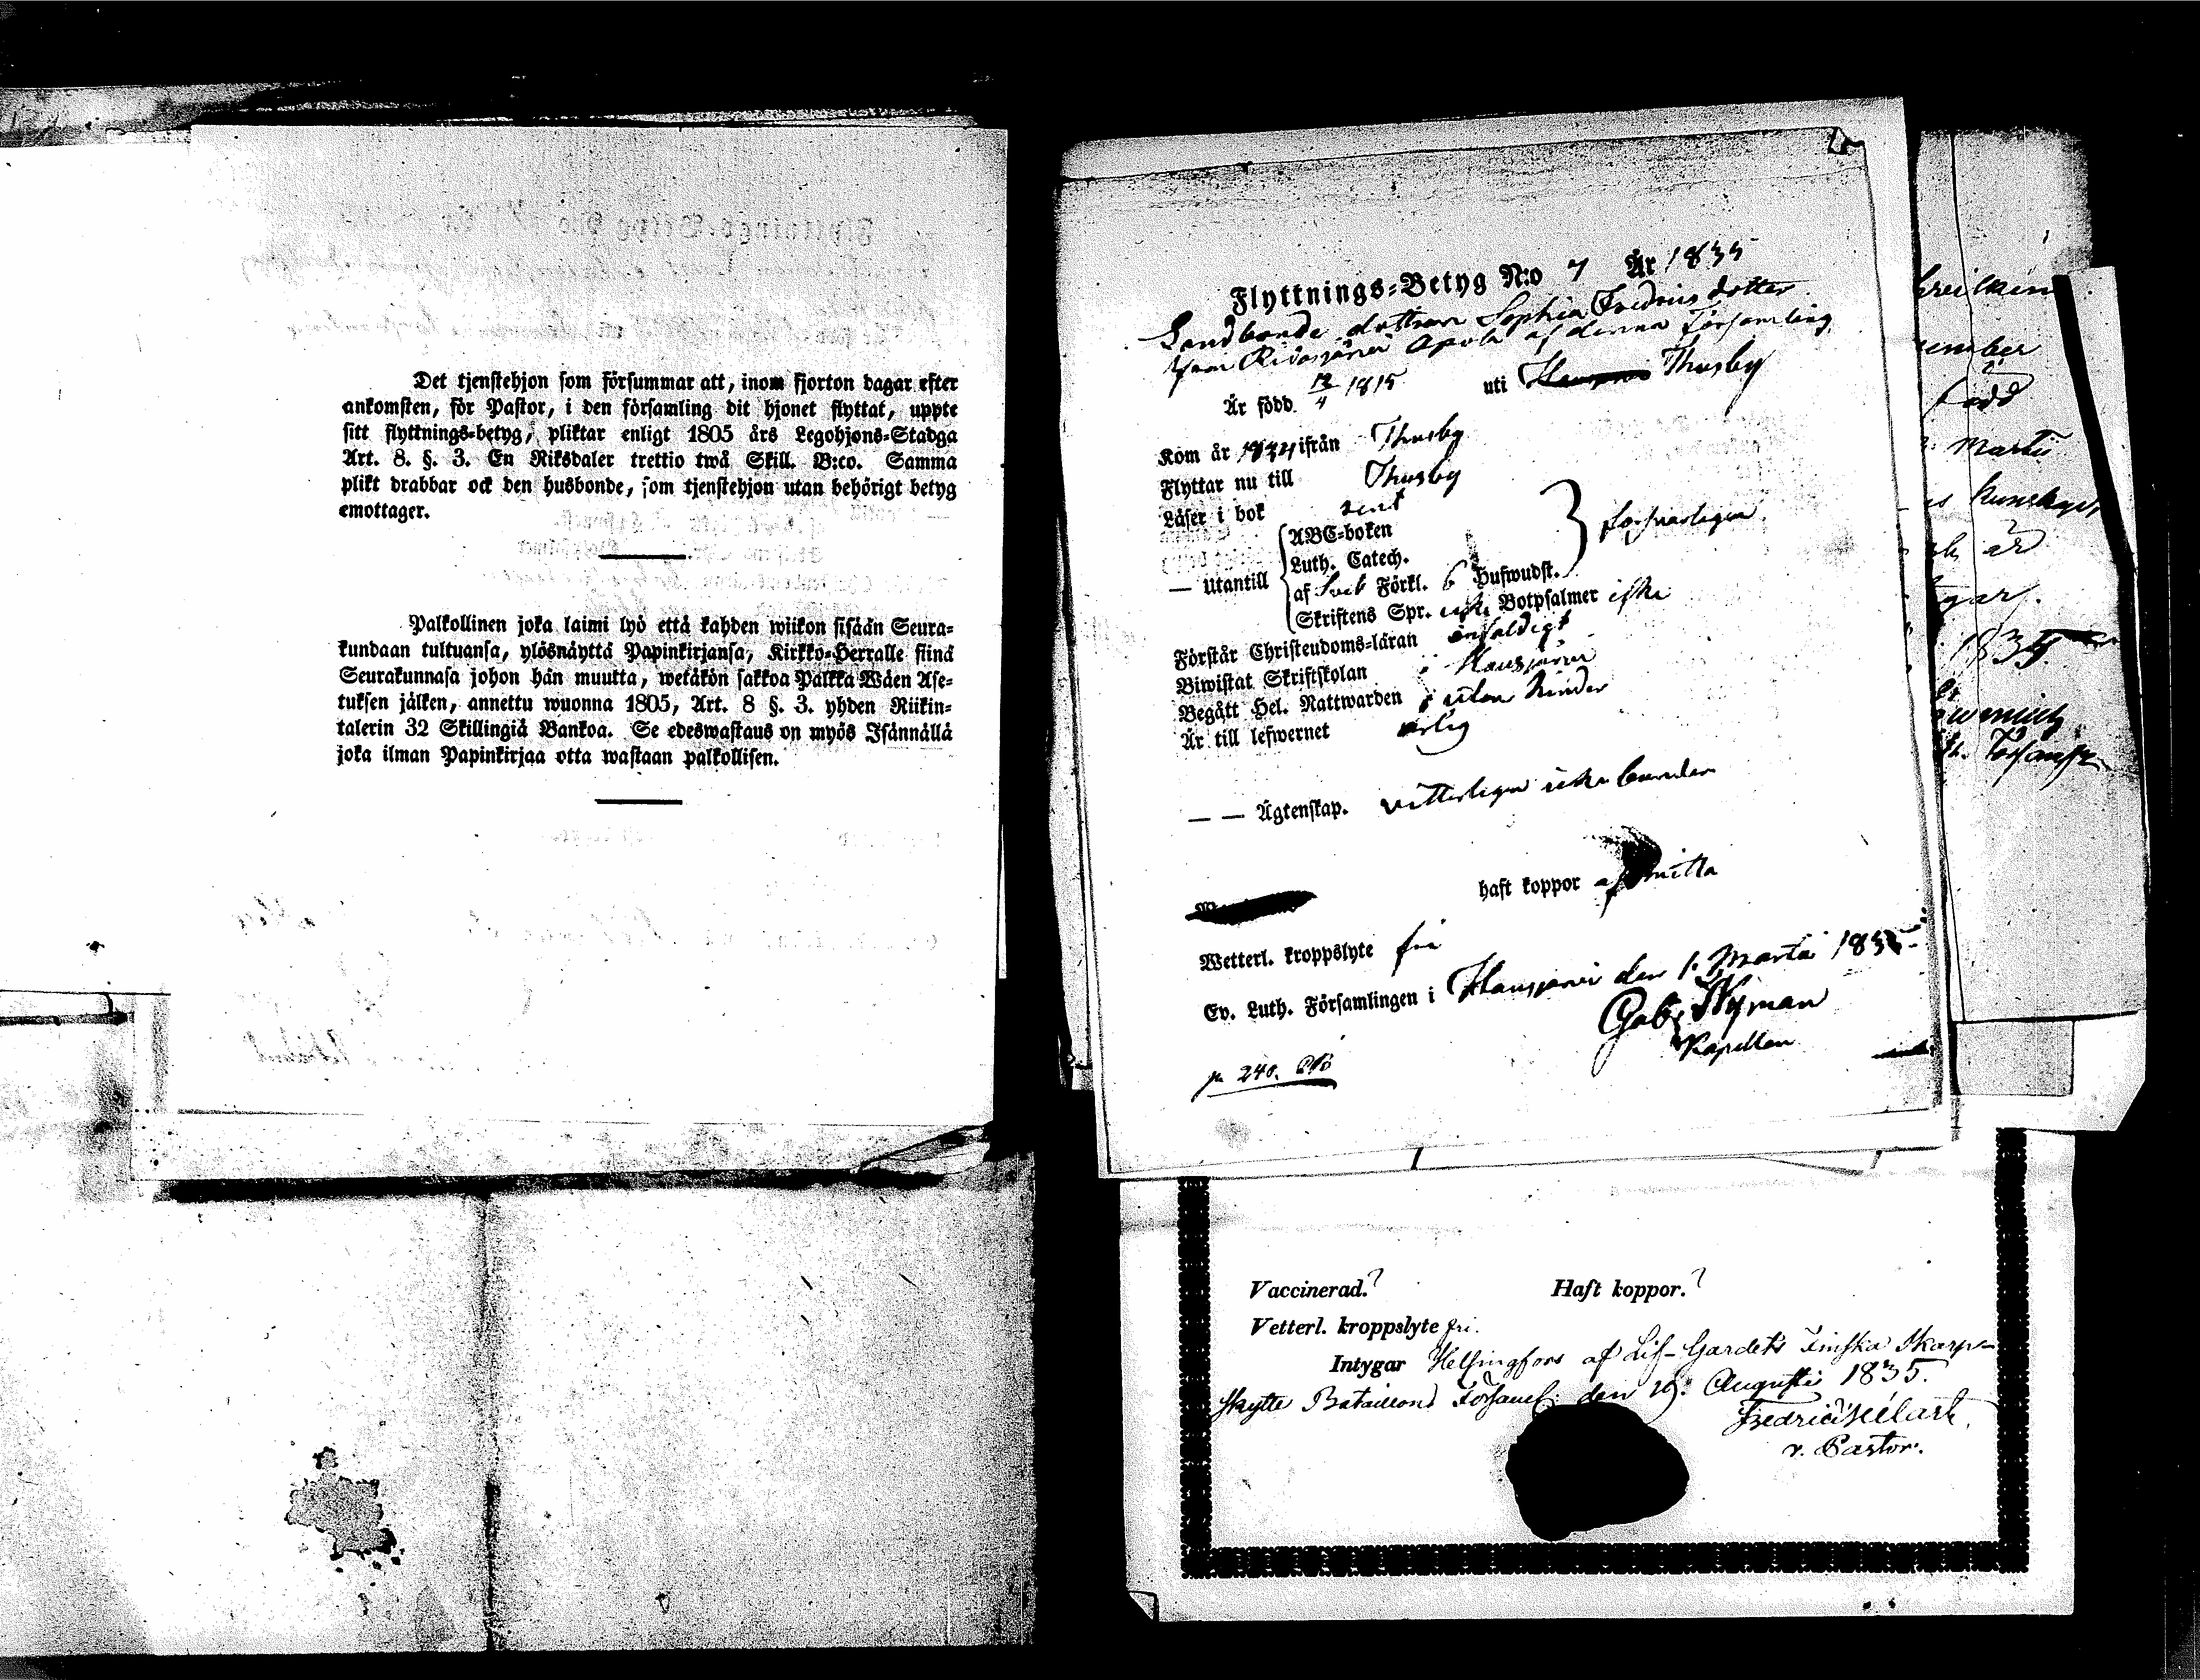 Det tjenstehjon som försummar att, inom fjorton dagar efter
ankomsten, för Pastor, i den församling dit hjonet flyttat, uppte
sitt flyttnings-betyg, pliktar enligt 1805 års Legohjons-Stadga
Art. 8. §. 3. En Riksdaler trettio twå Skill. B:co. Samma
plikt drabbar ock den husbonde, som tjenstehjon utan behörigt betyg
emottager.
Palkollinen joka laimi lyö että kahden wiikon sisään Seura-
kundaan tultuansa, ylösnäyttä Papinkirjansa, Kirkko-Herralle siinä
Seurakunnasa johon hän muutta, wetäkön sakkoa Palkka Wäen Ase-
tuksen jälken, annettu wuonna 1805, Art. 8 §. 3. yhden Riikin-
talerin 32 Skillingiä Bankoa. Se edeswastaus on myös Isännällä
joka ilman Papinkirjaa otta wastaan palkollisen.
Flyttnings-Betyg N:o 7 År 1835
Landbonde dottren Sophia Fredrics dotter
från Ridasjärvi af denna Församling
Är född 12/4 1815 uti Thusby
Kom år 1834 ifrån Thusby
Flyttar nu till Thusby
Läser i bok
— Utantill ABC-boken
Luth. Catech. försvarligen
af Sveb Förkl. 6 Hufwudst.
Skriftens Spr. icke Botpsalmer icke
Förstår Christendoms-läran enfaldigt
Biwistat Skriftskolan i Hausjärvi
Begått Hel. Nattwarden utan hinder
Är till lefwernet ärlig
— — Ägtenskap. vitterligen icke bunden
haft koppor af smitta
Wetterl. kroppslyte fri
Ev. Luth. Församlingen i Hausjärvi den 1. Martii 1835
Gab. Nyman
Kapellan
p. 240.
ember
född
Martii
är
1835
Församl.
Vaccinerad.? Haft koppor.?
Vetterl. kroppslyte fri.
Intygar Helsingfors af Lif-Gardets Finska Skarp-
skytte Bataillons Församl: den 19. Augusti 1835.
Fredric
v. Pastor.